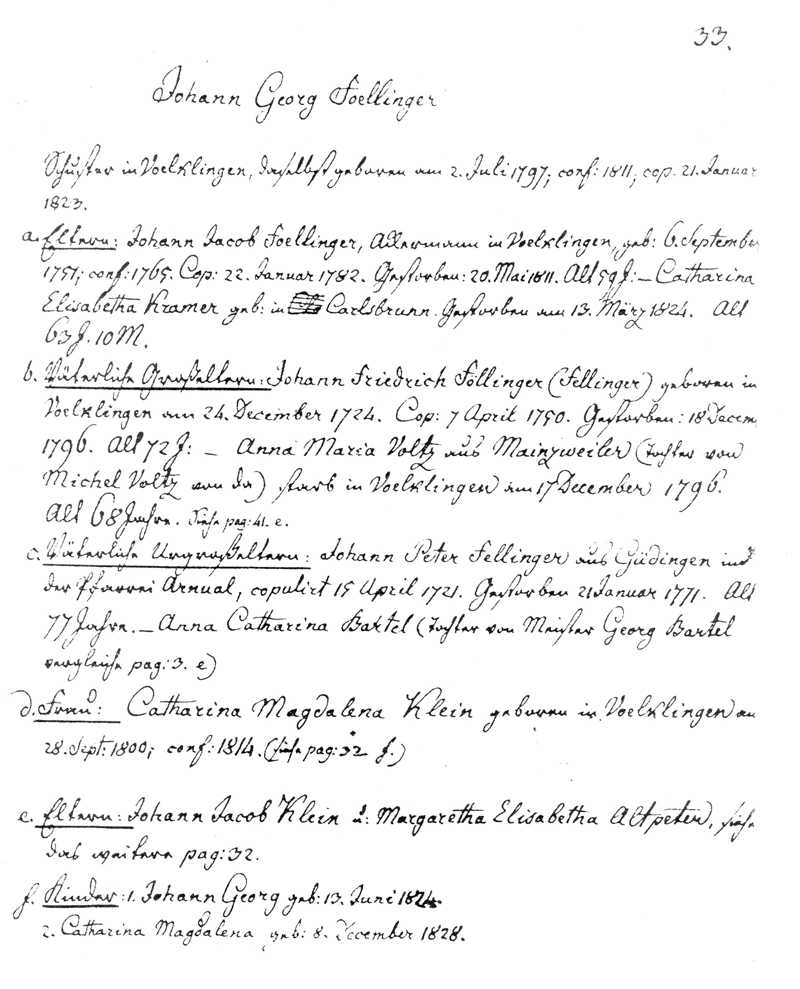 33.
Johann Georg Foellinger
Schuster in Voelklingen, daselbst geboren am 2. Juli 1797; conf: 1811; cop. 21. Januar
1823.
a. Eltern: Johann Jacob Foellinger, Ackermann in Voelklingen, geb: 6. September
1751; conf: 1765. Cop: 22. Januar 1782. Gestorben: 20. Mai 1811. Alt 59 J: – Catharina
Elisabetha Kramer geb: in Carlsbrunn. Gestorben am 13. März 1824. Alt
63 J. 10 M.
b. Väterliche Großeltern: Johann Friedrich Föllinger (Fellinger) geboren in
Voelklingen am 24. December 1724. Cop: 7 April 1750. Gestorben: 18 Decem
1796. Alt 72 J: – Anna Maria Voltz aus Mainzweiler (Tochter von
Michel Voltz von da) starb in Voelklingen am 17 December 1796.
Alt 68 Jahre. Siehe pag: 41. e.
c. Väterliche Urgroßeltern: Johann Peter Fellinger aus Güdingen in
der Pfarrei Arnual, copulirt 15 April 1721. Gestorben 21 Januar 1771. Alt
77 Jahre. – Anna Catharina Bartel (Tochter von Meister Georg Bartel
vergleiche pag: 3. e)
d. Frau: Catharina Magdalena Klein geboren in Voelklingen am
28. Sept: 1800; conf: 1814. (siehe pag: 32 f.)
e. Eltern: Johann Jacob Klein u: Margaretha Elisabetha Altpeter, siehe
das weitere pag: 32.
f. Kinder: 1. Johann Georg geb: 13. Juni 1824.
2. Catharina Magdalena geb: 8. December 1828.